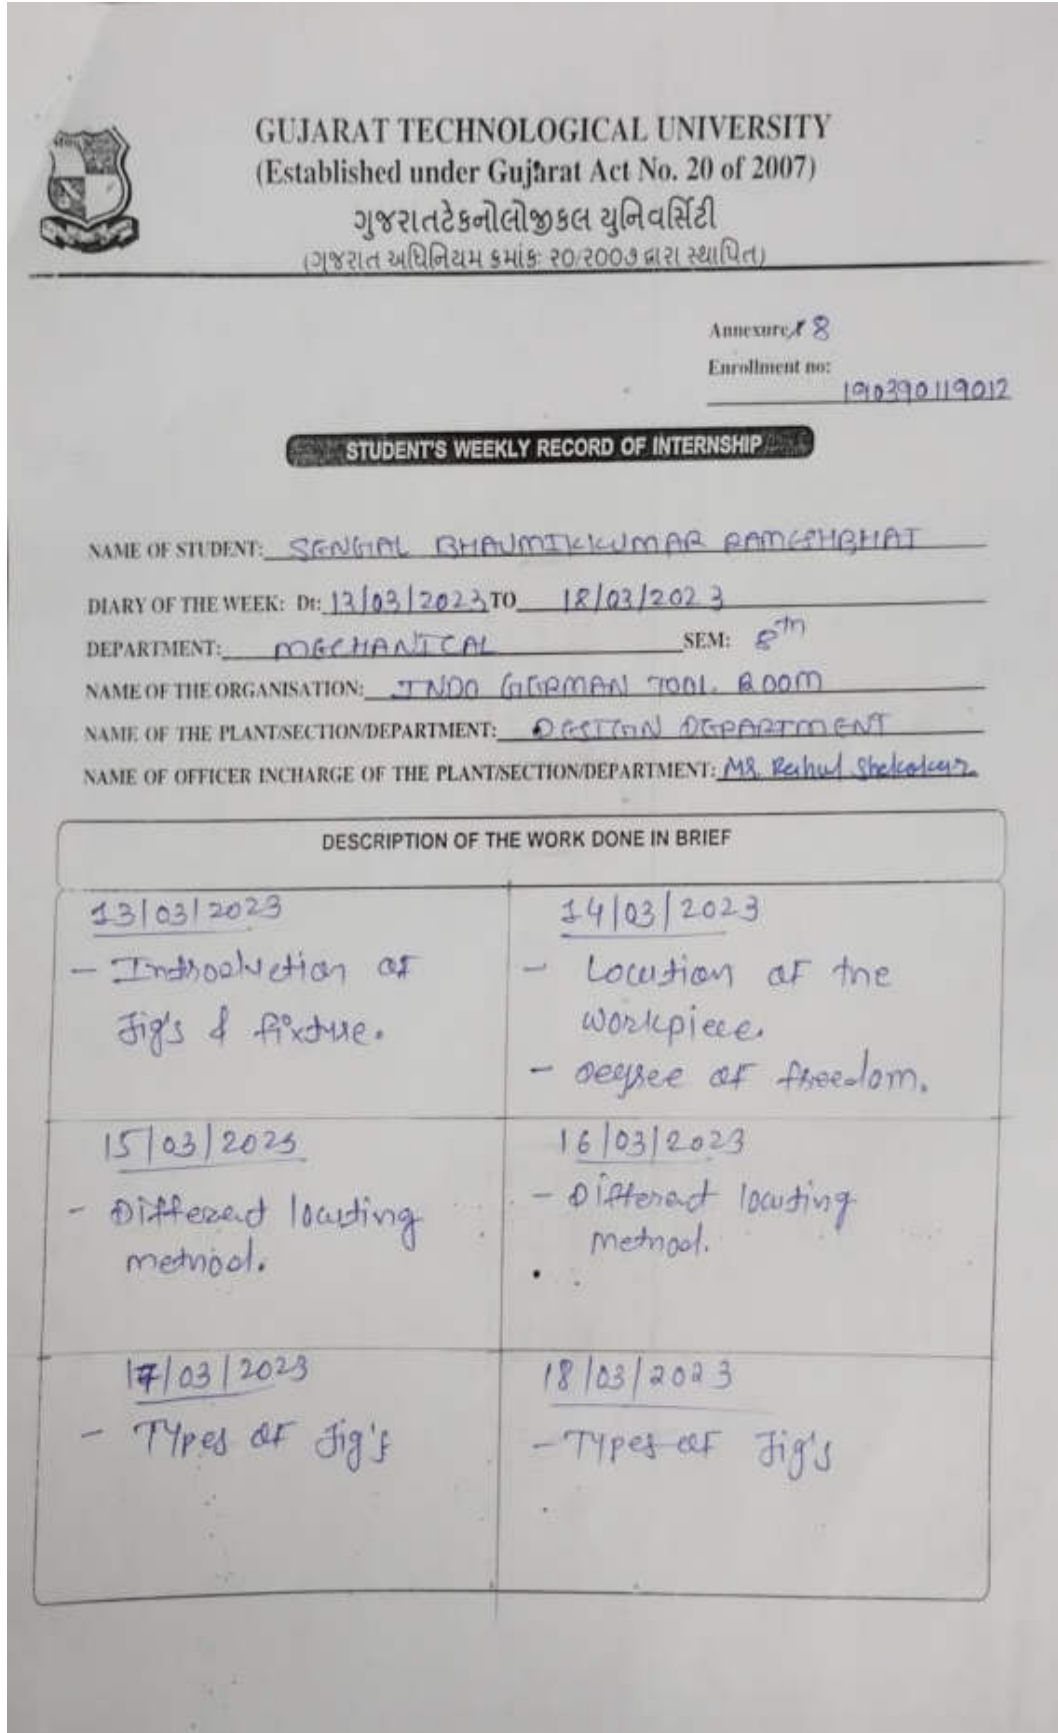 GUJARAT TECHNOLOGICAL UNIVERSITY
(Established under Gujarat Act No. 20 of 2007)
ગુજરાતટેકનોલોજીકલ યુનિવર્સિટી
(ગુજરાત અધિનિયમ ક્રમાંકઃ ૨૦/૨૦૦૭ દ્વારા સ્થાપિત)
Annexure 8
Enrollment no:
190390119012
STUDENT'S WEEKLY RECORD OF INTERNSHIP
NAME OF STUDENT: SENGAL BHAUMIKKUMAR RAMESHBHAI
DIARY OF THE WEEK: Dt: 13/03/2023 TO 18/03/2023
DEPARTMENT: MECHANICAL SEM: 8th
NAME OF THE ORGANISATION: INDO GERMAN TOOL ROOM
NAME OF THE PLANT/SECTION/DEPARTMENT: DESIGN DEPARTMENT
NAME OF OFFICER INCHARGE OF THE PLANT/SECTION/DEPARTMENT: Rahul
DESCRIPTION OF THE WORK DONE IN BRIEF
13/03/2023
- Introduction of
Jig's & fixture.
14/03/2023
- Location of the
workpiece.
- Degree of freedom.
15/03/2023
- Different locating
method.
16/03/2023
- Different locating
method.
17/03/2023
- Types of Jig's
18/03/2023
- Types of Jig's